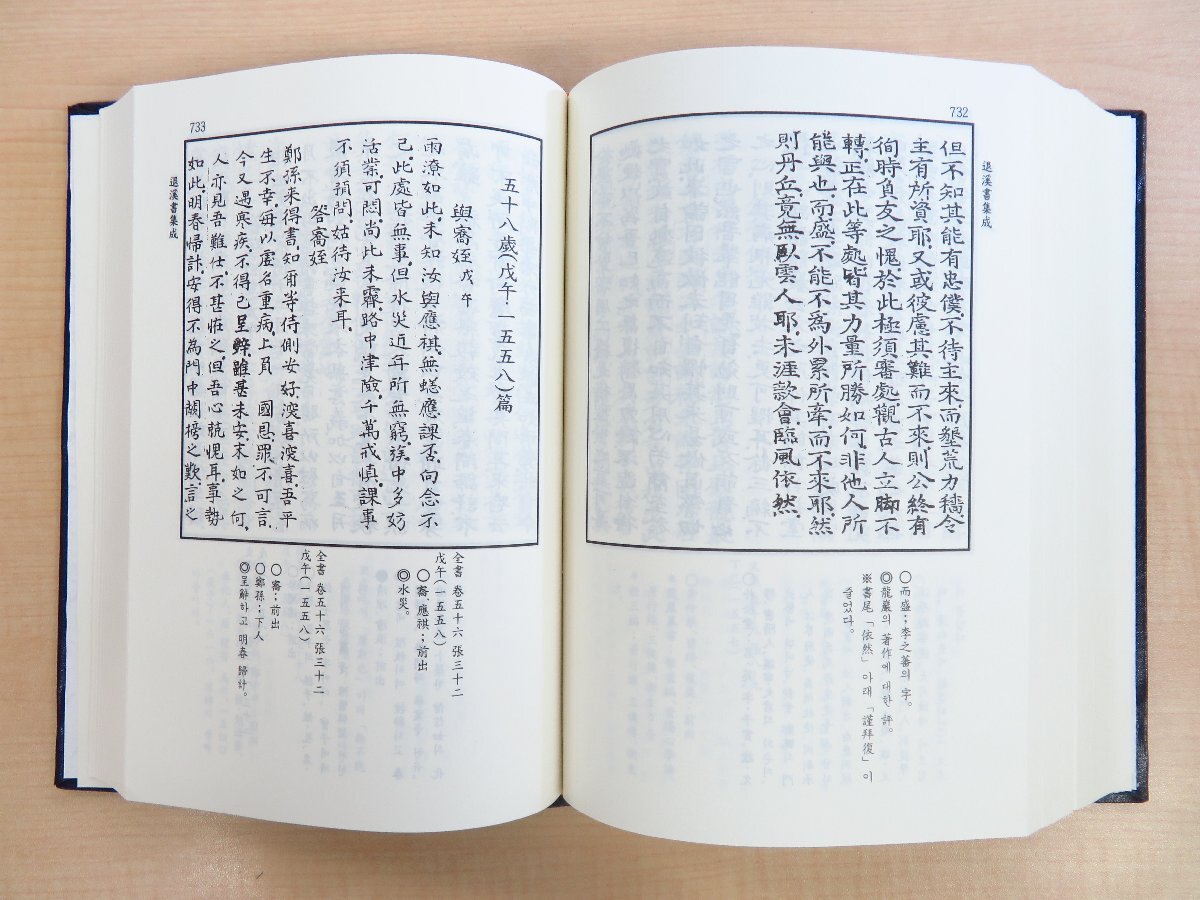 732
退溪書集成
但不知其能有忠僕、不待主來而墾荒力穡、令
主有所資耶、又或彼慮其難而不來、則公終有
徇時負友之愧、於此極須審處、觀古人立脚不
轉、正在此等處、皆其力量所勝如何、非他人所
能與也、而盛、不能不爲外累所牽、而不來耶、然
則丹丘、竟無臥雲人耶、未涯款會、臨風依然、
○而盛；李之蕃의 字。
◎龍巖의 著作에 대한 評。
※書尾「依然」아래「謹拜復」이
줄었다。
733
五十八歲(戊午·一五五八)篇
與㝯姪 戊午
雨潦如此、未知汝與應祺、無蟋應課否、向念不
已、此處皆無事、但水災近年所無、窮族中多妨
活業、可悶、尙此未霽、路中津險、千萬戒愼、課事
不須預問、姑待汝來耳、
答㝯姪
鄭孫來得書、知爾等侍側安好、深喜深喜、吾平
生不幸、每以虛名重病、上負 國恩、罪不可言、
今又遇寒疾、不得已呈辭、雖甚未安、末如之何、
人亦見吾難仕、不甚怪之、但吾心兢愧耳、事勢
如此、明春歸計、安得不為門中關榜之歎、言之
退溪書集成
全書 卷五十六 張三十二
戊午(一五五八)
○㝯、應祺；前出
◎水災。
全書 卷五十六 張三十二
戊午(一五五八)
○㝯；前出
○鄭孫；下人
◎呈辭하고 明春 歸計。